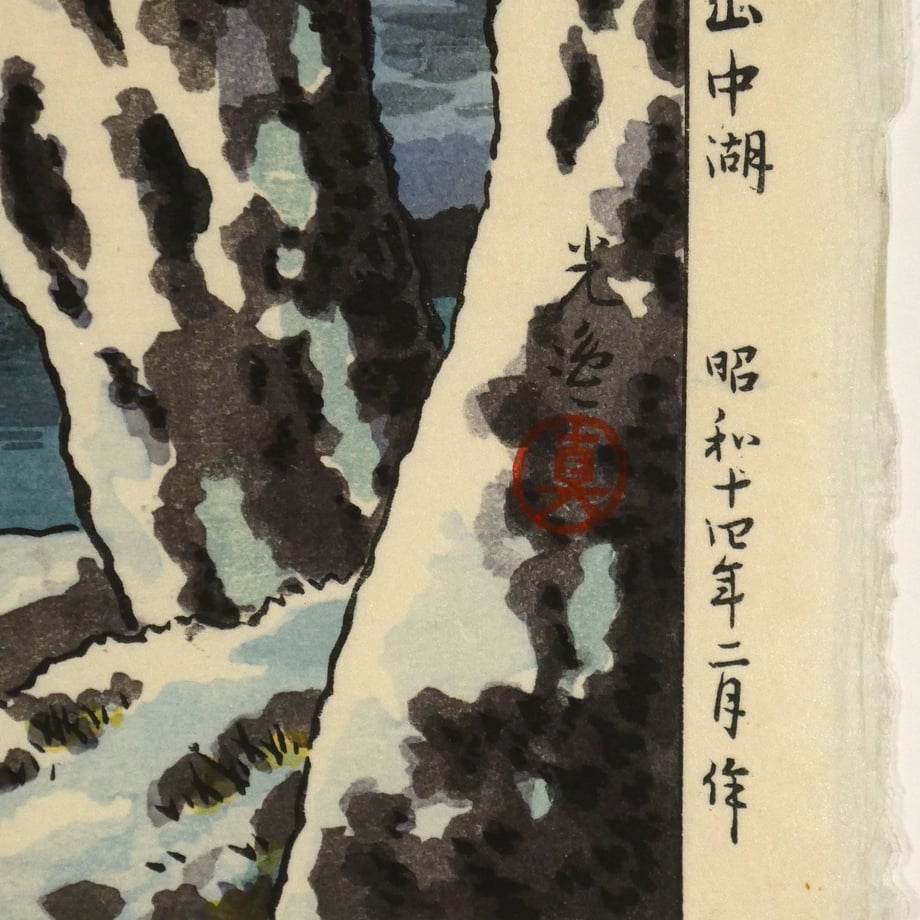 山中湖 昭和十四年二月作
光逸
真